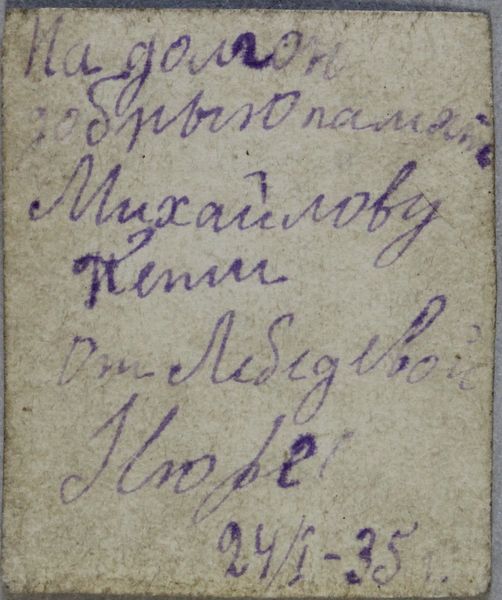 На долгои
добрыю память
Михайлову
Кети
от Лебедевой
Нюре
24/I-35 г.